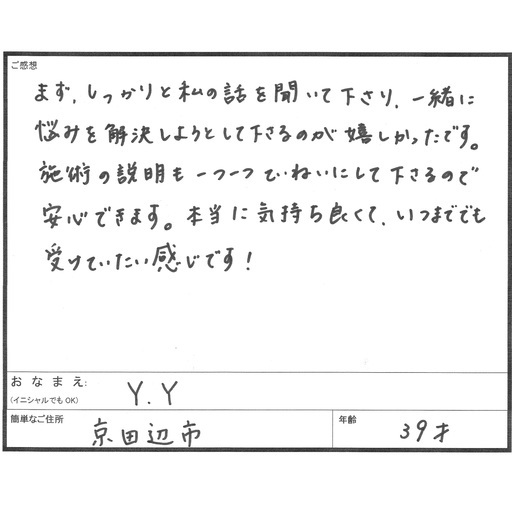 ご感想
まず、しっかりと私の話を聞いて下さり、一緒に
悩みを解決しようとして下さるのが嬉しかったです。
施術の説明も一つ一つていねいにして下さるので
安心できます。本当に気持ち良くて、いつまででも
受けていたい感じです!
おなまえ:
(イニシャルでもOK)
Y.Y
簡単なご住所
京田辺市
年齢
39才